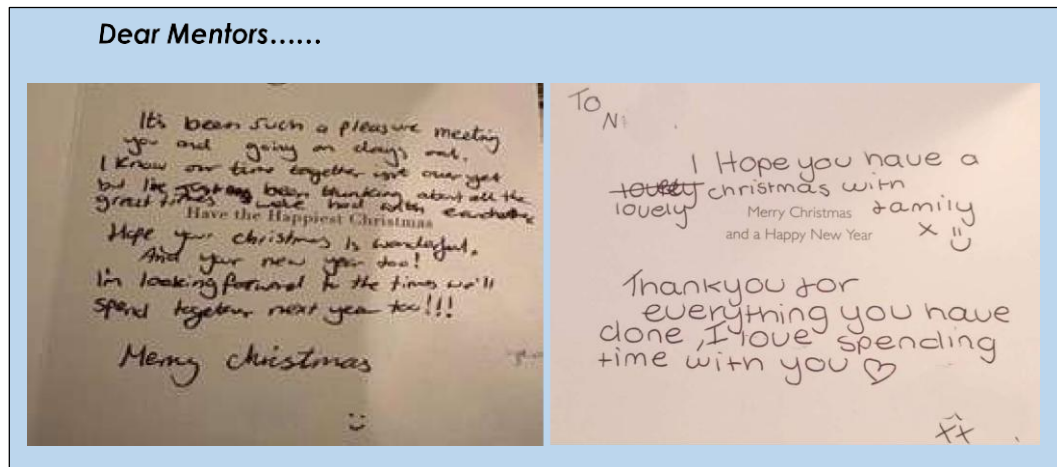 Dear Mentors......
It's been such a pleasure meeting
you and going on days out.
I know our time together isnt over yet
but I've just been thinking about all the
great times weve had with eachother
Have the Happiest Christmas
Hope your christmas is wonderful.
And your new year too!
I'm looking forward to the times we'll
spend together next year too!!!
Merry christmas
TO
I Hope you have a
lovely christmas with
lovely family
Merry Christmas
x
and a Happy New Year
Thankyou for
everything you have
done, I love spending
time with you ♡
xx